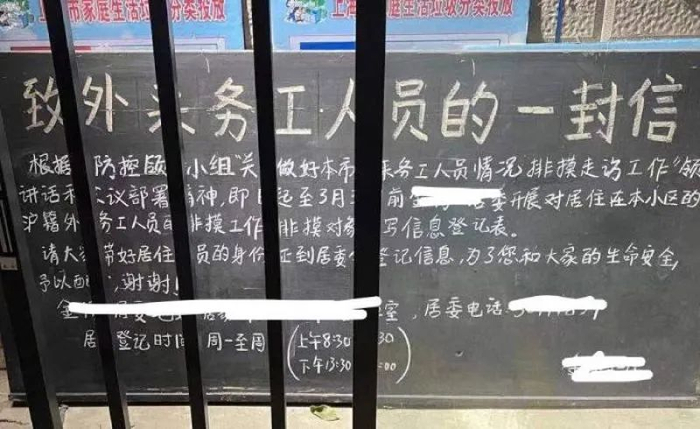 市家庭生活垃圾分类投放
上海 家庭生活垃圾分类投放
致外来务工人员的一封信
根据 防控领 小组"关 做好本市 来务工人员情况排摸走访工作"领
讲话和 议部署 精神,即日起至3月 前 开展对居住在本小区的
沪籍外 务工人员的排摸工作 排摸对象 写信息登记表。
请大家带好居住 员的身份证到居委 登记信息,为了您和大家的生命安全,
予以配 ,谢谢!
室,居委电话:
居 登记时间 周一至周 (上午8:30 30
下午13:30 00)